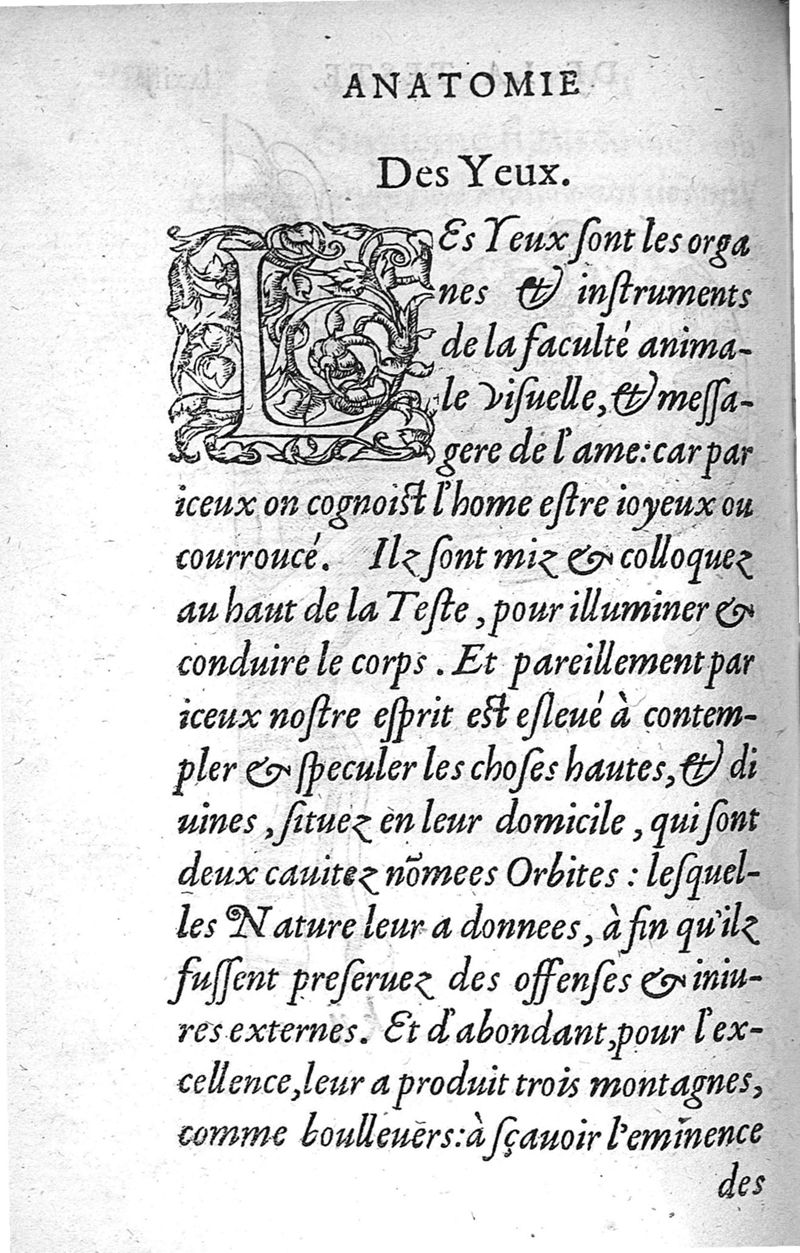 ANATOMIE
Des Yeux.
LEs Yeux ſont les orga
nes & inſtruments
de la faculté anima-
le viſuelle, & meſſa-
gere de l'ame: car par
iceux on cognoiſt l'home eſtre ioyeux ou
courroucé. Ilz ſont miz & colloquez
au haut de la Teſte, pour illuminer &
conduire le corps. Et pareillement par
iceux noſtre eſprit eſt eſleué à contem-
pler & ſpeculer les choſes hautes, & di
uines, ſituez en leur domicile, qui ſont
deux cauitez nõmees Orbites: leſquel-
les Nature leur a donnees, à fin qu'ilz
fuſſent preſeruez des offenſes & iniu-
res externes. Et d'abondant, pour l'ex-
cellence, leur a produit trois montagnes,
comme boulleuers: à ſçauoir l'eminence
des